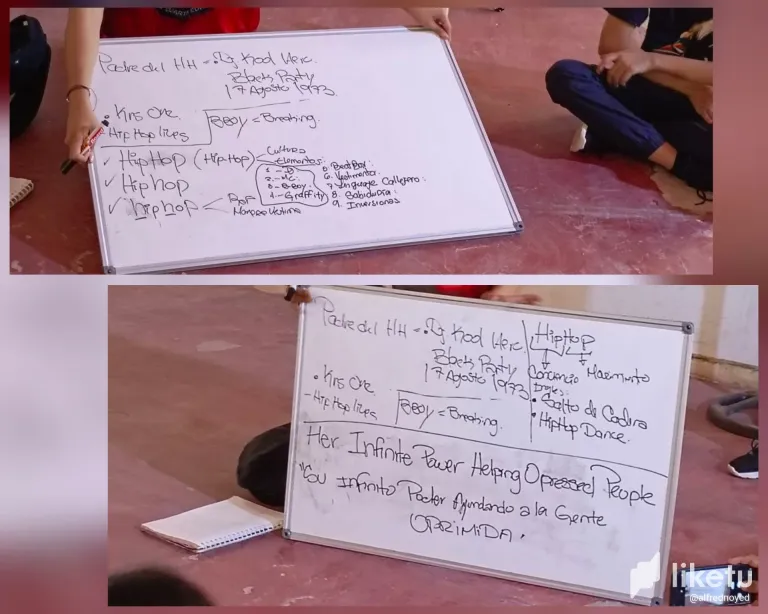 Padre del HH = Dj Kool Herc.
Block Party
17 Agosto 1973
• Krs One
- Hip Hop lives
BBoy = Breaking.
✓ HipHop (Hip-Hop)
Cultura
elementos:
✓ Hip hop
✓ hip hop
2.- MC
3.- B-Boy
4.- Graffity
6. Vestimenta
7. Lenguaje Callejero
8. Sabiduria
9. Inversiones
Padre del HH = Dj Kool Herc.
Block Party
17 Agosto 1973
• Krs One
- Hip Hop lives
BBoy = Breaking.
HipHop
Movimiento
Ingles:
• Salto de Cadera
• HipHop Dance.
Her Infinite Power Helping Opressed People
Infinito Poder Ayudando a la Gente
OPRIMIDA.
liketu
@alfrednoyed